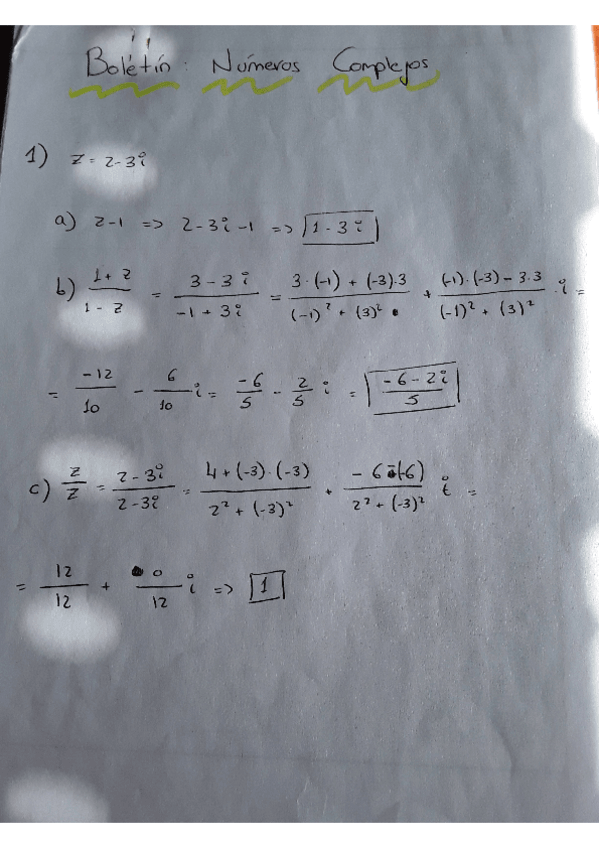 Bolétín: Números Complejos
1) z = 2-3i
a) z-1 => 2-3i-1 => 1-3i
b) 1+z / 1-z = 3-3i / -1+3i = 3·(-1) + (-3)·3 / (-1)² + (3)² + (-1)·(-3) - 3·3 / (-1)² + (3)² · i =
= -12/10 - 6/10 i = -6/5 - 2/5 i = -6-2i / 5
c) z/z = 2-3i / 2-3i = 4+(-3)·(-3) / 2²+(-3)² + -6-(-6) / 2²+(-3)² i =
= 12/12 + 0/12 i => 1